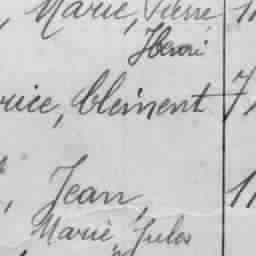 , Marie, Pierre 1
Henri
rice, Clément 7
, Jean, 11
Marie Jules